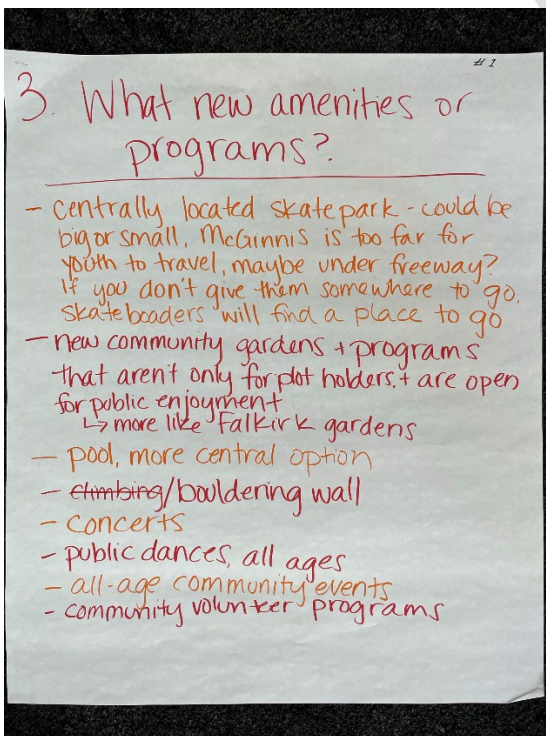 # 1
3. What new amenities or
programs?
- centrally located skatepark - could be
big or small, McGinnis is too far for
youth to travel, maybe under freeway?
If you don't give them somewhere to go,
skateboaders will find a place to go
- new community gardens + programs
that aren't only for plot holders, + are open
for public enjoyment
↳ more like Falkirk gardens
- pool, more central option
- climbing/bouldering wall
- concerts
- public dances, all ages
- all-age community events
- community volunteer programs